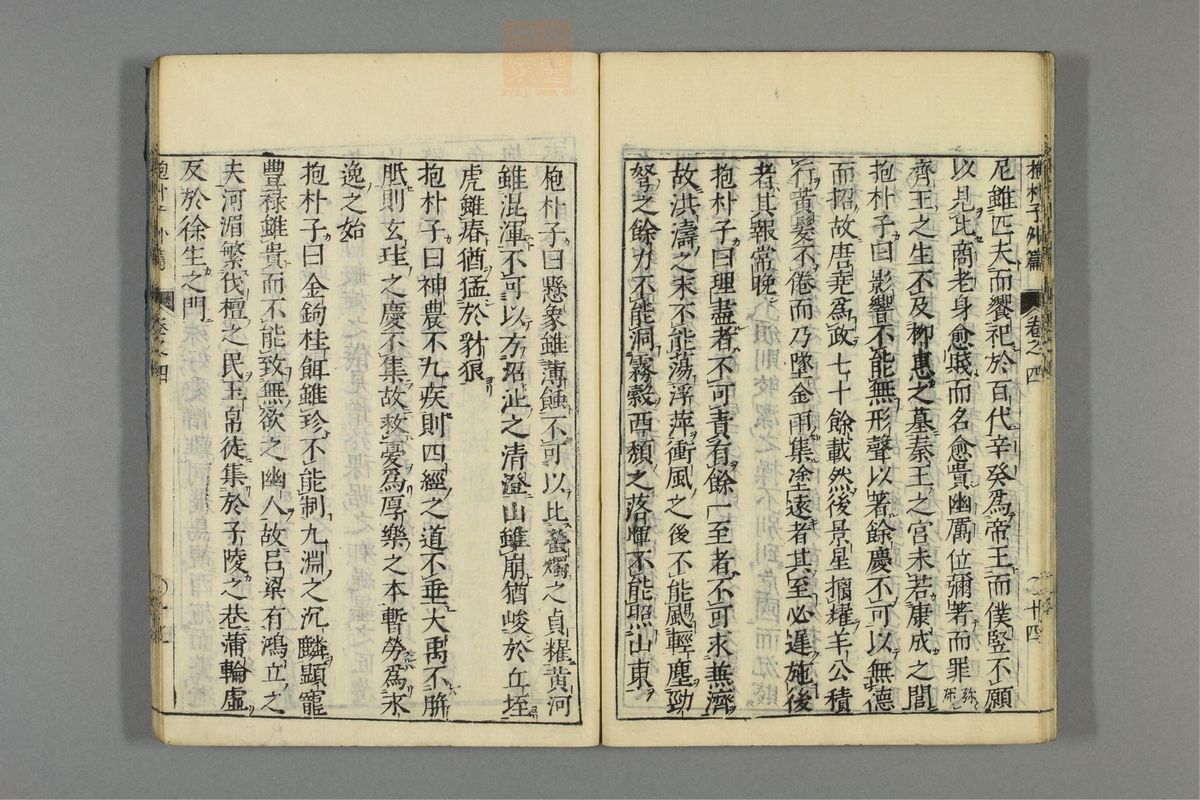 抱朴子外篇 卷之四 二十四
尼雖匹夫而饗祀於百代辛癸爲帝王而僕竪不願
以見比商老身愈賎而名愈貴幽厲位彌著而罪彌
齊王之生不及柳惠之墓秦王之宮未若康成之閭
抱朴子曰影響不能無形聲以著餘慶不可以無德
而招故唐堯爲政七十餘載然後景星摛燿羊公積
行黃髮不倦而乃墜金雨集塗遠者其至必遲施後
者其報常晚
抱朴子曰理盡者不可責有餘一至者不可求兼濟
故洪濤之末不能蕩浮萍衝風之後不能颺輕塵勁
弩之餘力不能洞霧縠西頽之落暉不能照山東
抱朴子曰懸象雖薄蝕不可以比螢燭之貞耀黃河
雖混渾不可以方沼沚之清澄山雖崩猶峻於丘垤
虎雖瘠猶猛於豺狼
抱朴子曰神農不九疾則四經之道不垂大禹不胼
胝則玄珪之慶不集故救憂爲厚樂之本暫勞爲永
逸之始
抱朴子曰金鉤桂餌雖珍不能制九淵之沉鱗顯寵
豐祿雖貴而不能致無欲之幽人故呂梁有鴻立之
夫河湄繁伐檀之民玉帛徒集於子陵之巷蒲輪虛
反於徐生之門
抱朴子外篇 卷之四
zysj.com.cn